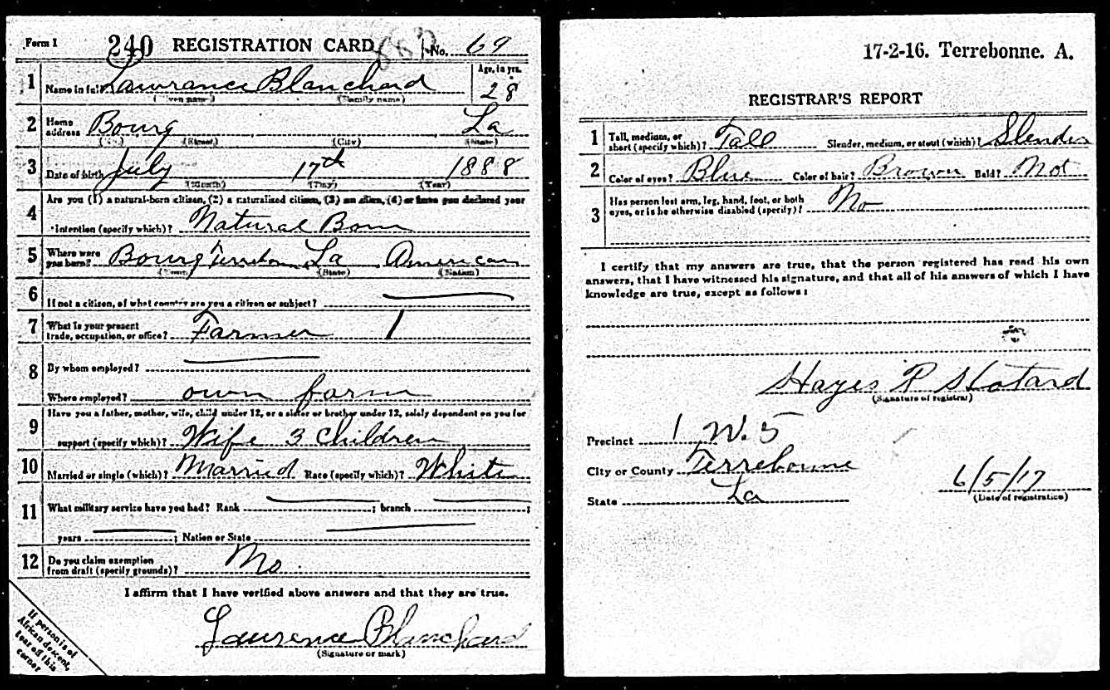 Form 1 240 REGISTRATION CARD No. 69
1 Name in full Lawrance Blanchard Age, in yrs. 28
(Given name) (Family name)
2 Home address Bourg La
(No.) (Street) (City) (State)
3 Date of birth July 17th 1888
(Month) (Day) (Year)
Are you (1) a natural-born citizen, (2) a naturalized citizen, (3) an alien, (4) or have you declared your
4 intention (specify which)? Natural Born
5 Where were you born? Bourg Terrebon La American
(Town) (State) (Nation)
6 If not a citizen, of what country are you a citizen or subject?
7 What is your present trade, occupation, or office? Farmer 1
8 By whom employed?
Where employed? own farm
9 Have you a father, mother, wife, child under 12, or a sister or brother under 12, solely dependent on you for
support (specify which)? Wife 3 Children
10 Married or single (which)? Married Race (specify which)? White
11 What military service have you had? Rank ; branch ;
years ; Nation or State
12 Do you claim exemption from draft (specify grounds)? No
I affirm that I have verified above answers and that they are true.
Laurence Blanchard
(Signature or mark)
If person is of
African descent,
tear off this
corner
17-2-16. Terrebonne. A.
REGISTRAR'S REPORT
1 Tall, medium, or short (specify which)? Tall Slender, medium, or stout (which)? Slender
2 Color of eyes? Blue Color of hair? Brown Bald? Not
3 Has person lost arm, leg, hand, foot, or both eyes, or is he otherwise disabled (specify)? No
I certify that my answers are true, that the person registered has read his own
answers, that I have witnessed his signature, and that all of his answers of which I have
knowledge are true, except as follows:
Hayes P
(Signature of registrar)
Precinct 1 W. 5
City or County Terrebonne
State La 6/5/17
(Date of registration)